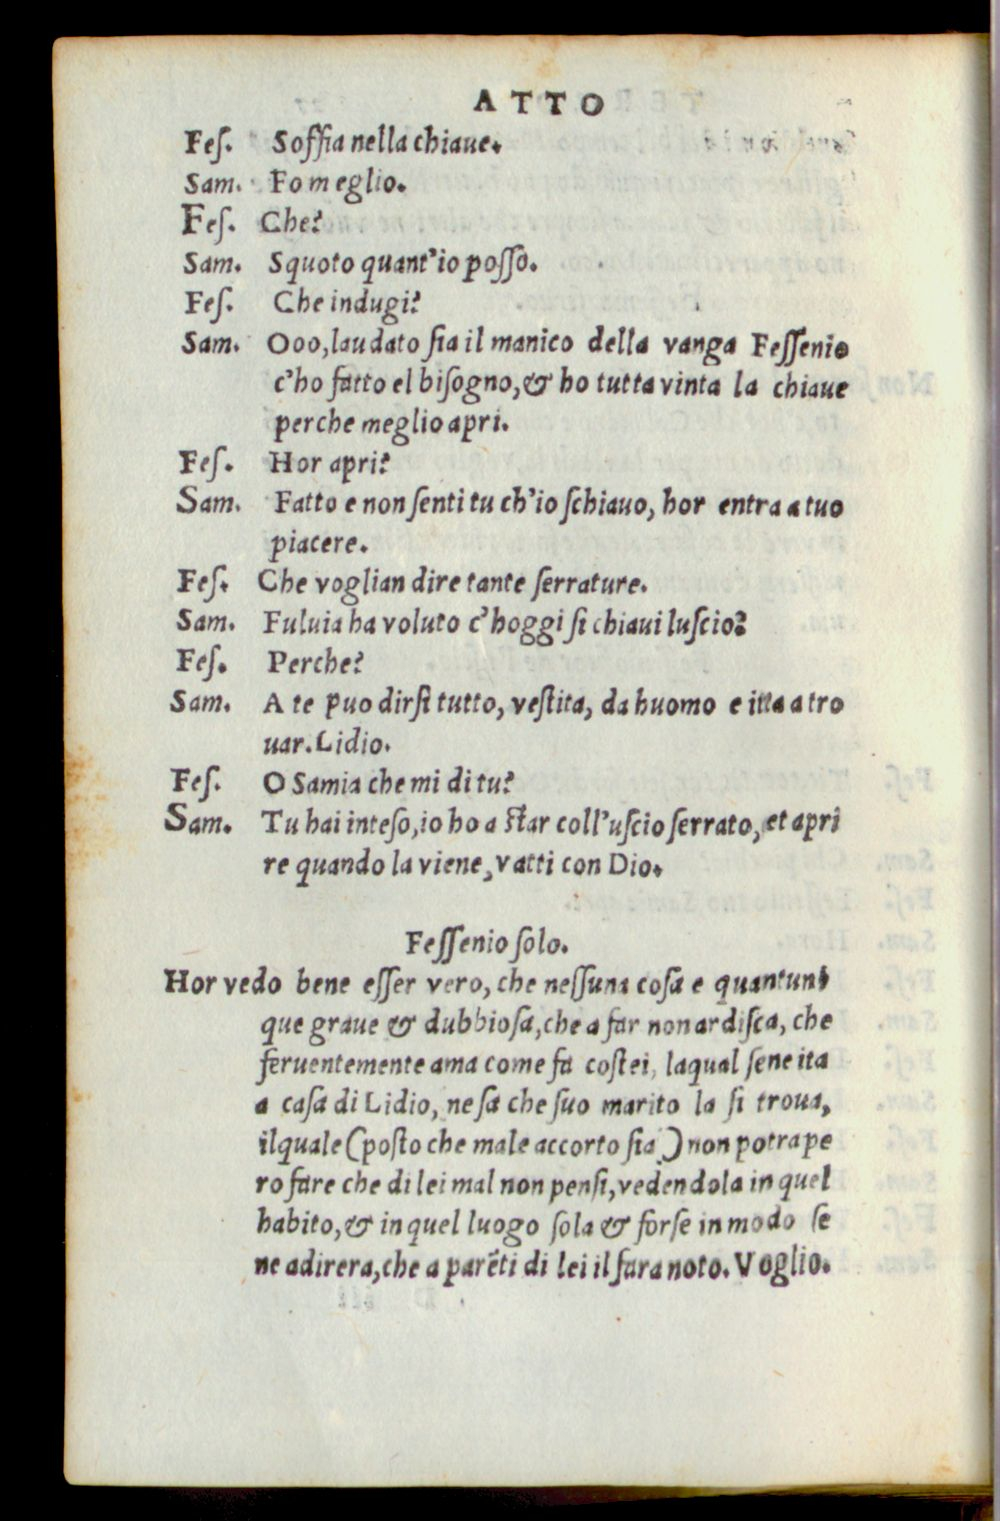 ATTO
Feſ. Soffia nella chiaue.
Sam. Fo meglio.
Feſ. Che?
Sam. Squoto quant'io poſſo.
Feſ. Che indugi?
Sam. Ooo, laudato ſia il manico della vanga Feſſenio
c'ho fatto el biſogno, & ho tutta vinta la chiaue
perche meglio apri.
Feſ. Hor apri?
Sam. Fatto e non ſenti tu ch'io ſchiauo, hor entra a tuo
piacere.
Feſ. Che voglian dire tante ſerrature.
Sam. Fuluia ha voluto c'hoggi ſi chiaui luſcio?
Feſ. Perche?
Sam. A te puo dirſi tutto, veſtita, da huomo e itta a tro
uar. Lidio.
Feſ. O Samia che mi di tu?
Sam. Tu hai inteſo, io ho a ſtar coll'uſcio ſerrato, et apri
re quando la viene, vatti con Dio.
Feſſenio ſolo.
Hor vedo bene eſſer vero, che neſſuna coſa e quantunı
que graue & dubbioſa, che a far non ardiſca, che
feruentemente ama come fa coſtei, laqual ſene ita
a caſa di Lidio, ne ſa che ſuo marito la ſi troua,
ilquale (poſto che male accorto ſia) non potra pe
ro fare che di lei mal non penſi, vedendola in quel
habito, & in quel luogo ſola & forſe in modo ſe
ne adirera, che a parẽti di lei il fara noto. Voglio.